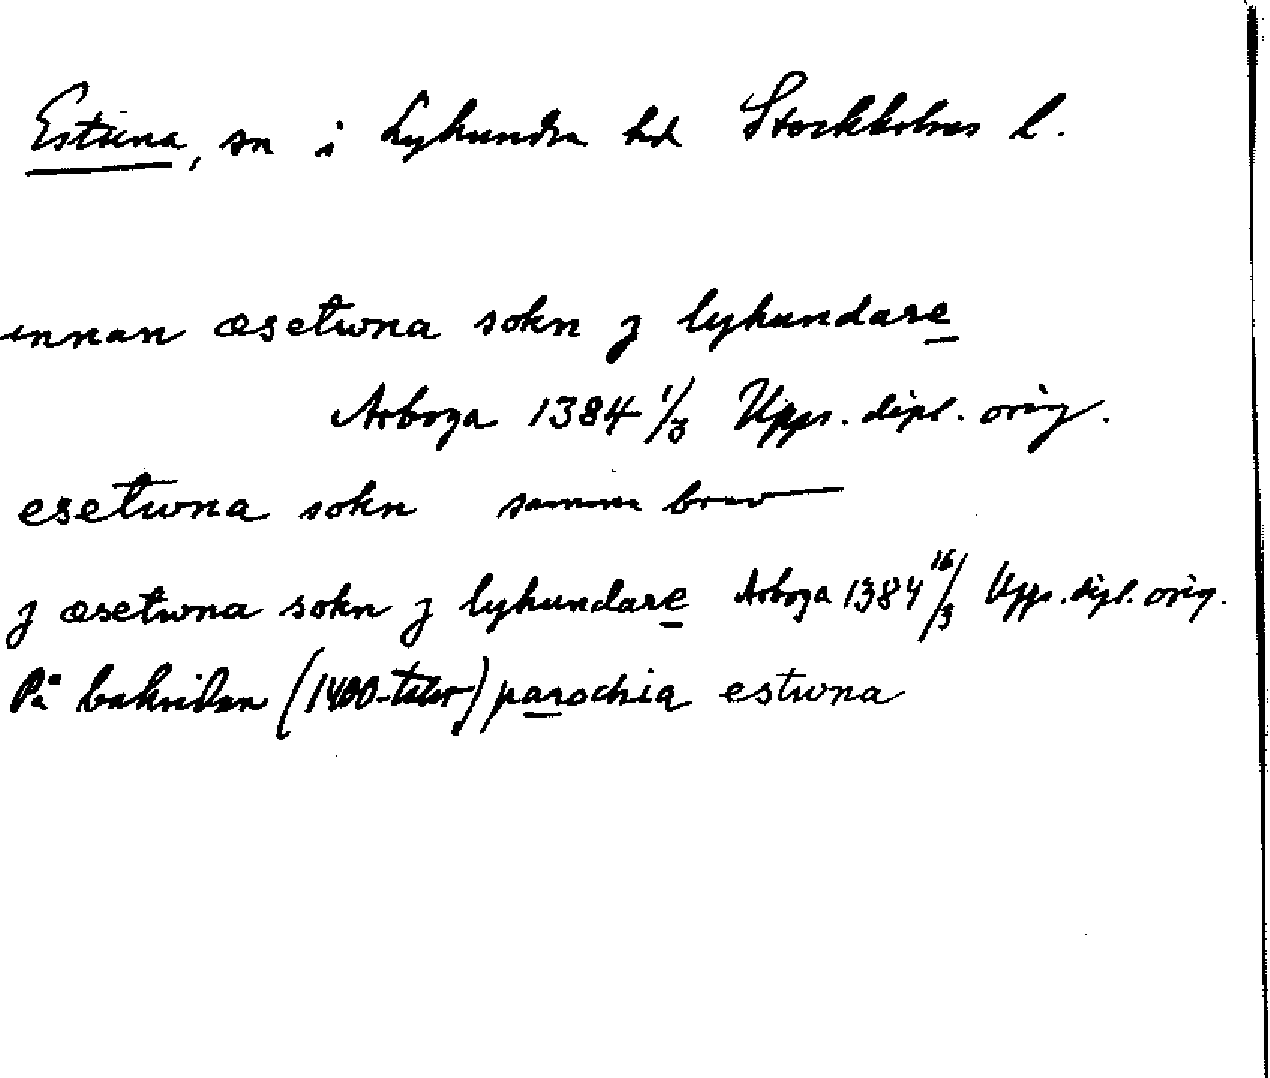 Estuna, sn i Lyhundra hd Stockholms l.
innan æsetwna sokn j lyhundare
Arboga 1384 1/3 Upps. dipl. orig.
esetwna sokn samma brev
j æsetwna sokn j lyhundare Arboga 1384 16/3 Upps. dipl. orig.
På baksidan (1400-talet) parochia estwna